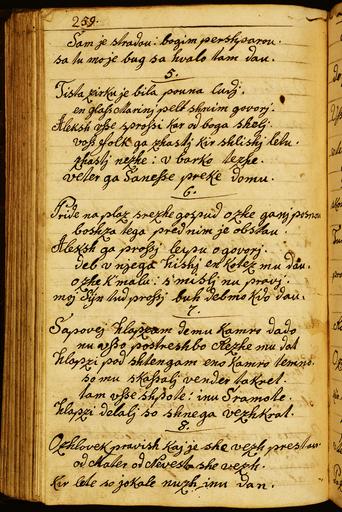 259.
Sam je stradau: bogim pershparou.
sa tu moje bug sa hvalo tam dau.
5.
Tista zirku je bila pouna ludy.
en glass Mariny pelt shnim govory.
Aleksh vsse prossi kar od boga shely.
voss folk ga shlishy kir lebu.
nezhe: v barko lezhe.
veter ga sanesse preke domu.
6.
Pride na plaz srezhe gospud ozhe ga ny
boshza tega prednim je obstau.
Aleksh ga prossy lepu ogovory.
deb v njega hishy en kotez mu dau.
ozhe k'malu: smisly nu pravy.
moj syn tud prossy buh debmo kdo dau.
7.
Sapovej hlapzam demu kamro dado
nu vsso postreshbo Alezhe mu dat
hlapzi pod shtengam eno kamro temno.
so mu skasaly vender takrat.
tam vsse shpote: inu sramote.
hlapzi delaly so shnega vezhkrat.
8.
Ozhlovek pravish kaj je she vezh
od Mater od Neveste she vezh.
kir lete so jokale nuzh inu dan.